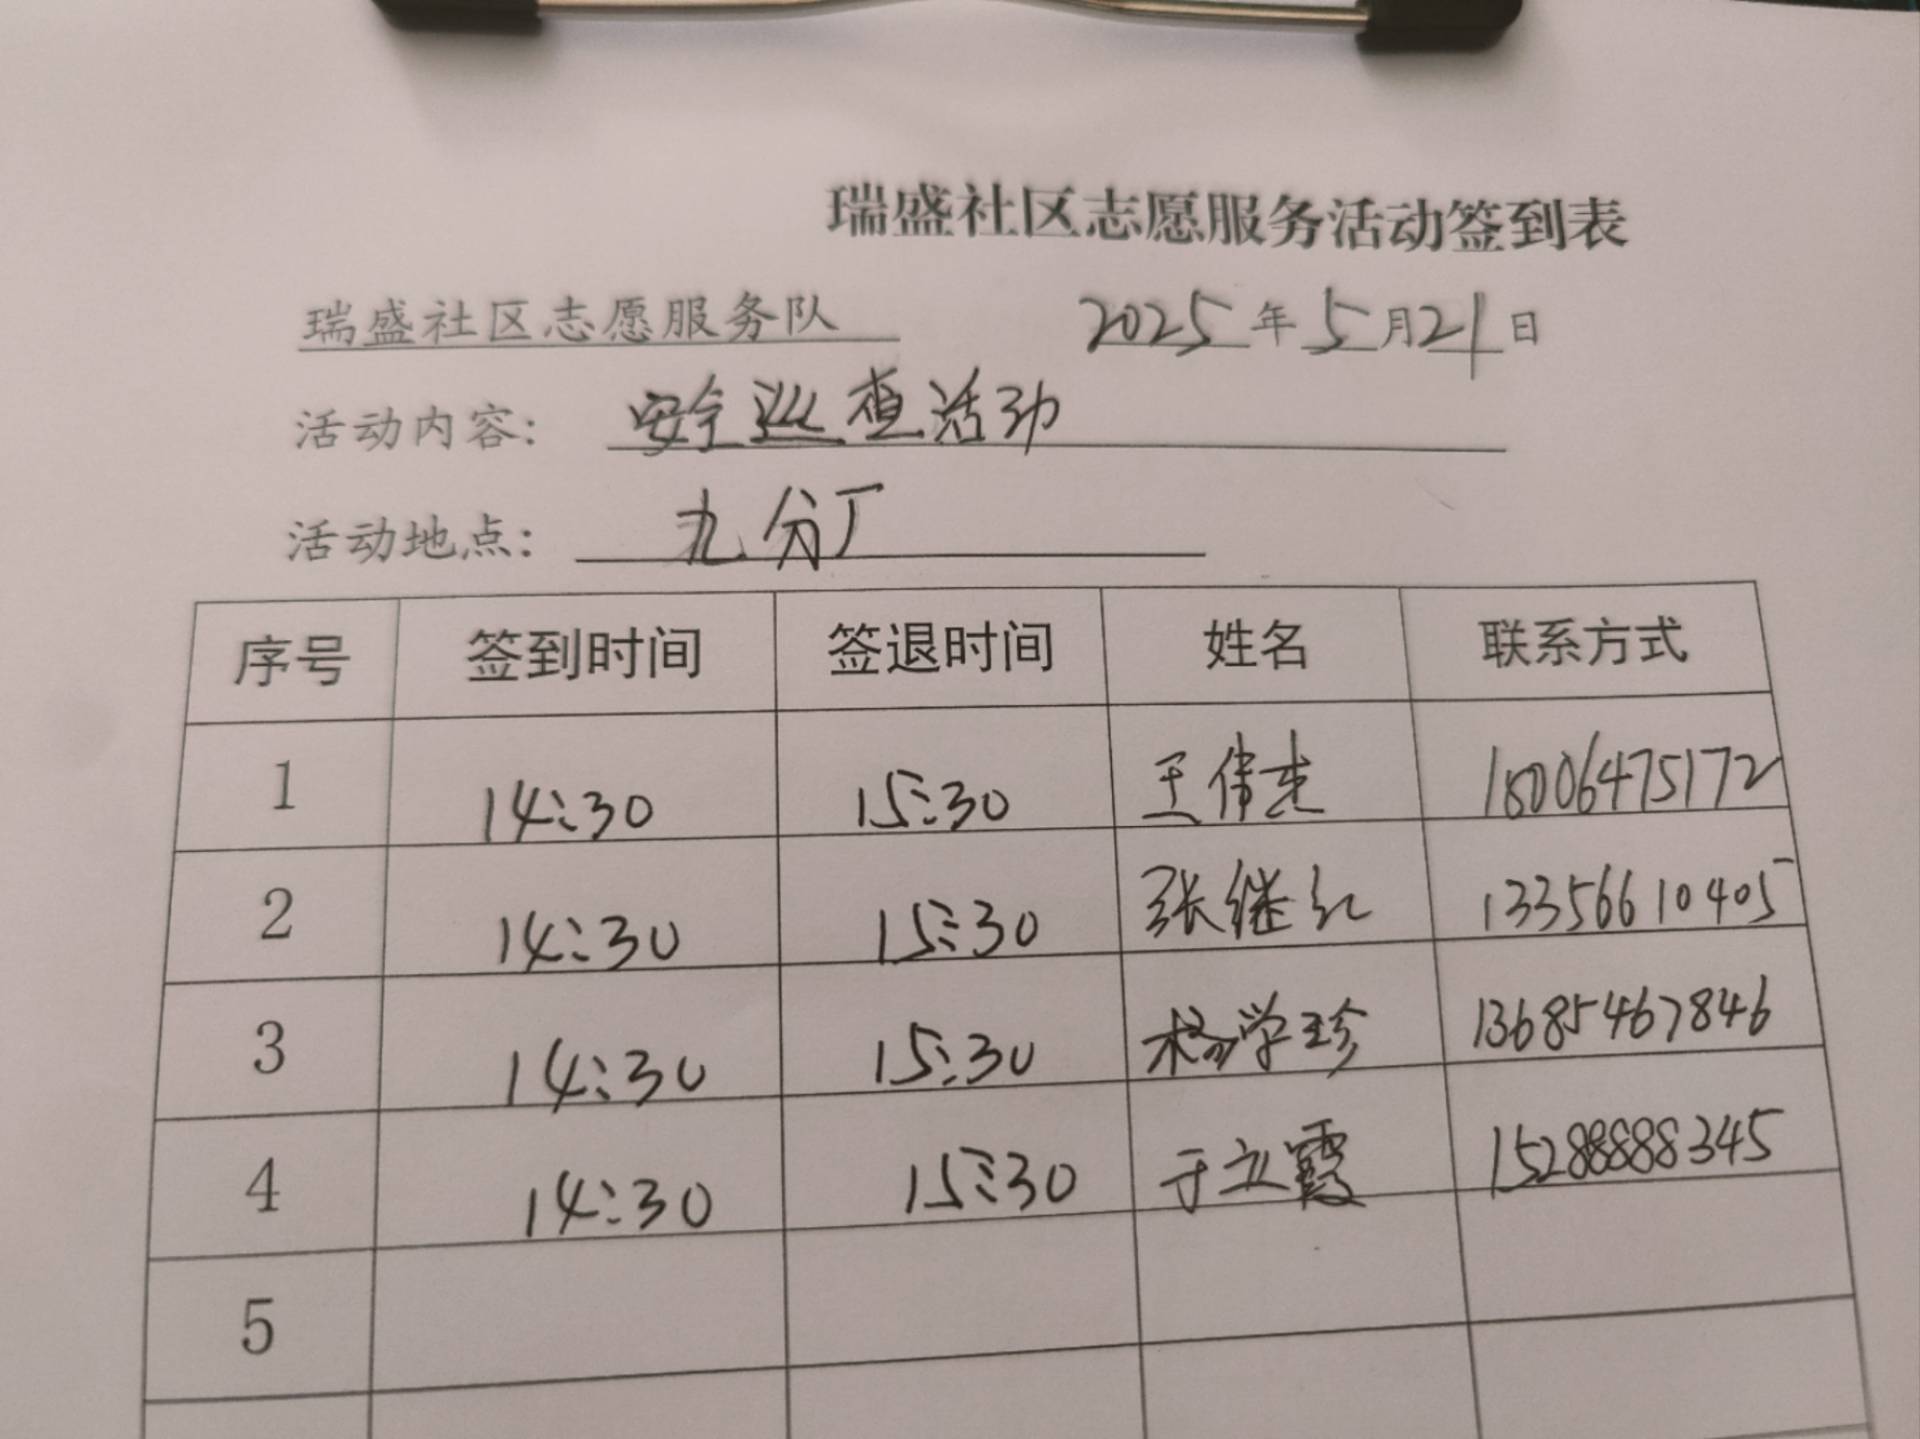 瑞盛社区志愿服务活动签到表
瑞盛社区志愿服务队 2025年5月21日
活动内容：安全巡查活动
活动地点：九分厂
序号 签到时间 签退时间 姓名 联系方式
1 14:30 15:30 王伟杰 18006475172
2 14:30 15:30 张继红 13356610405
3 14:30 15:30 杨学珍 13685467846
4 14:30 15:30 于立霞 15288888345
5